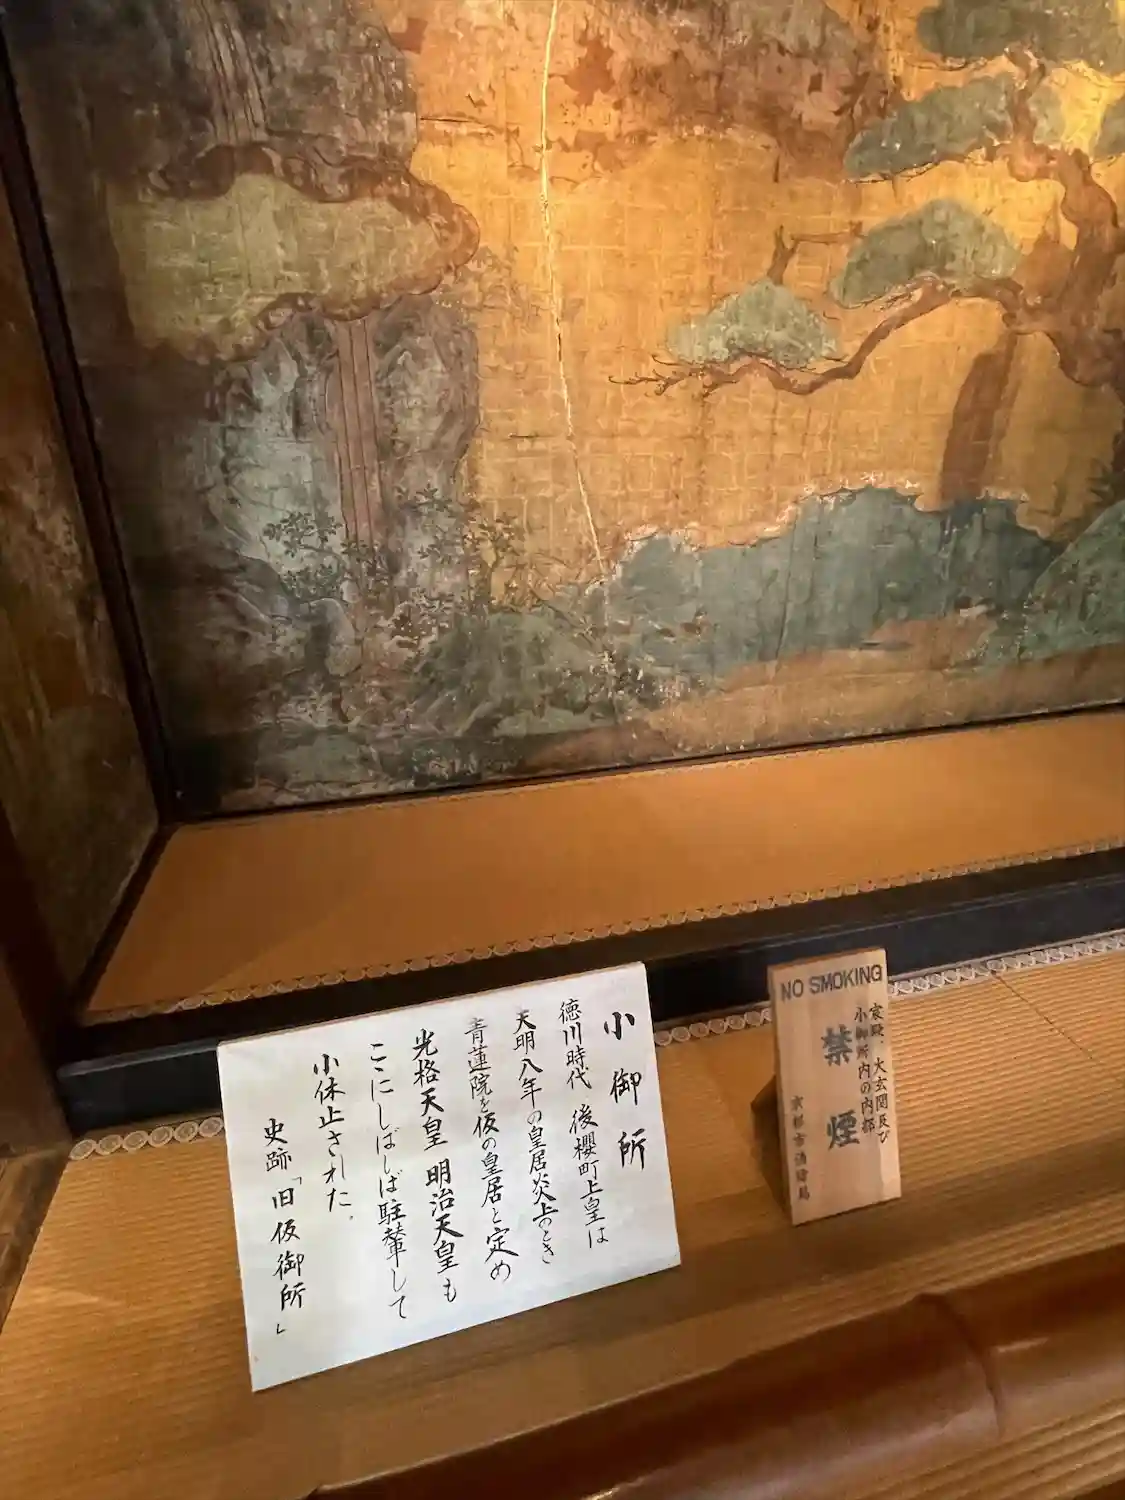 小御所
徳川時代 後櫻町上皇は
天明八年の皇居炎上のとき
青蓮院を仮の皇居と定め
光格天皇 明治天皇も
ここにしばしば駐輦して
小休止された。
史跡「旧仮御所」
NO SMOKING
宸殿、大玄関及び
小御所内の内部
禁煙
京都市消防局